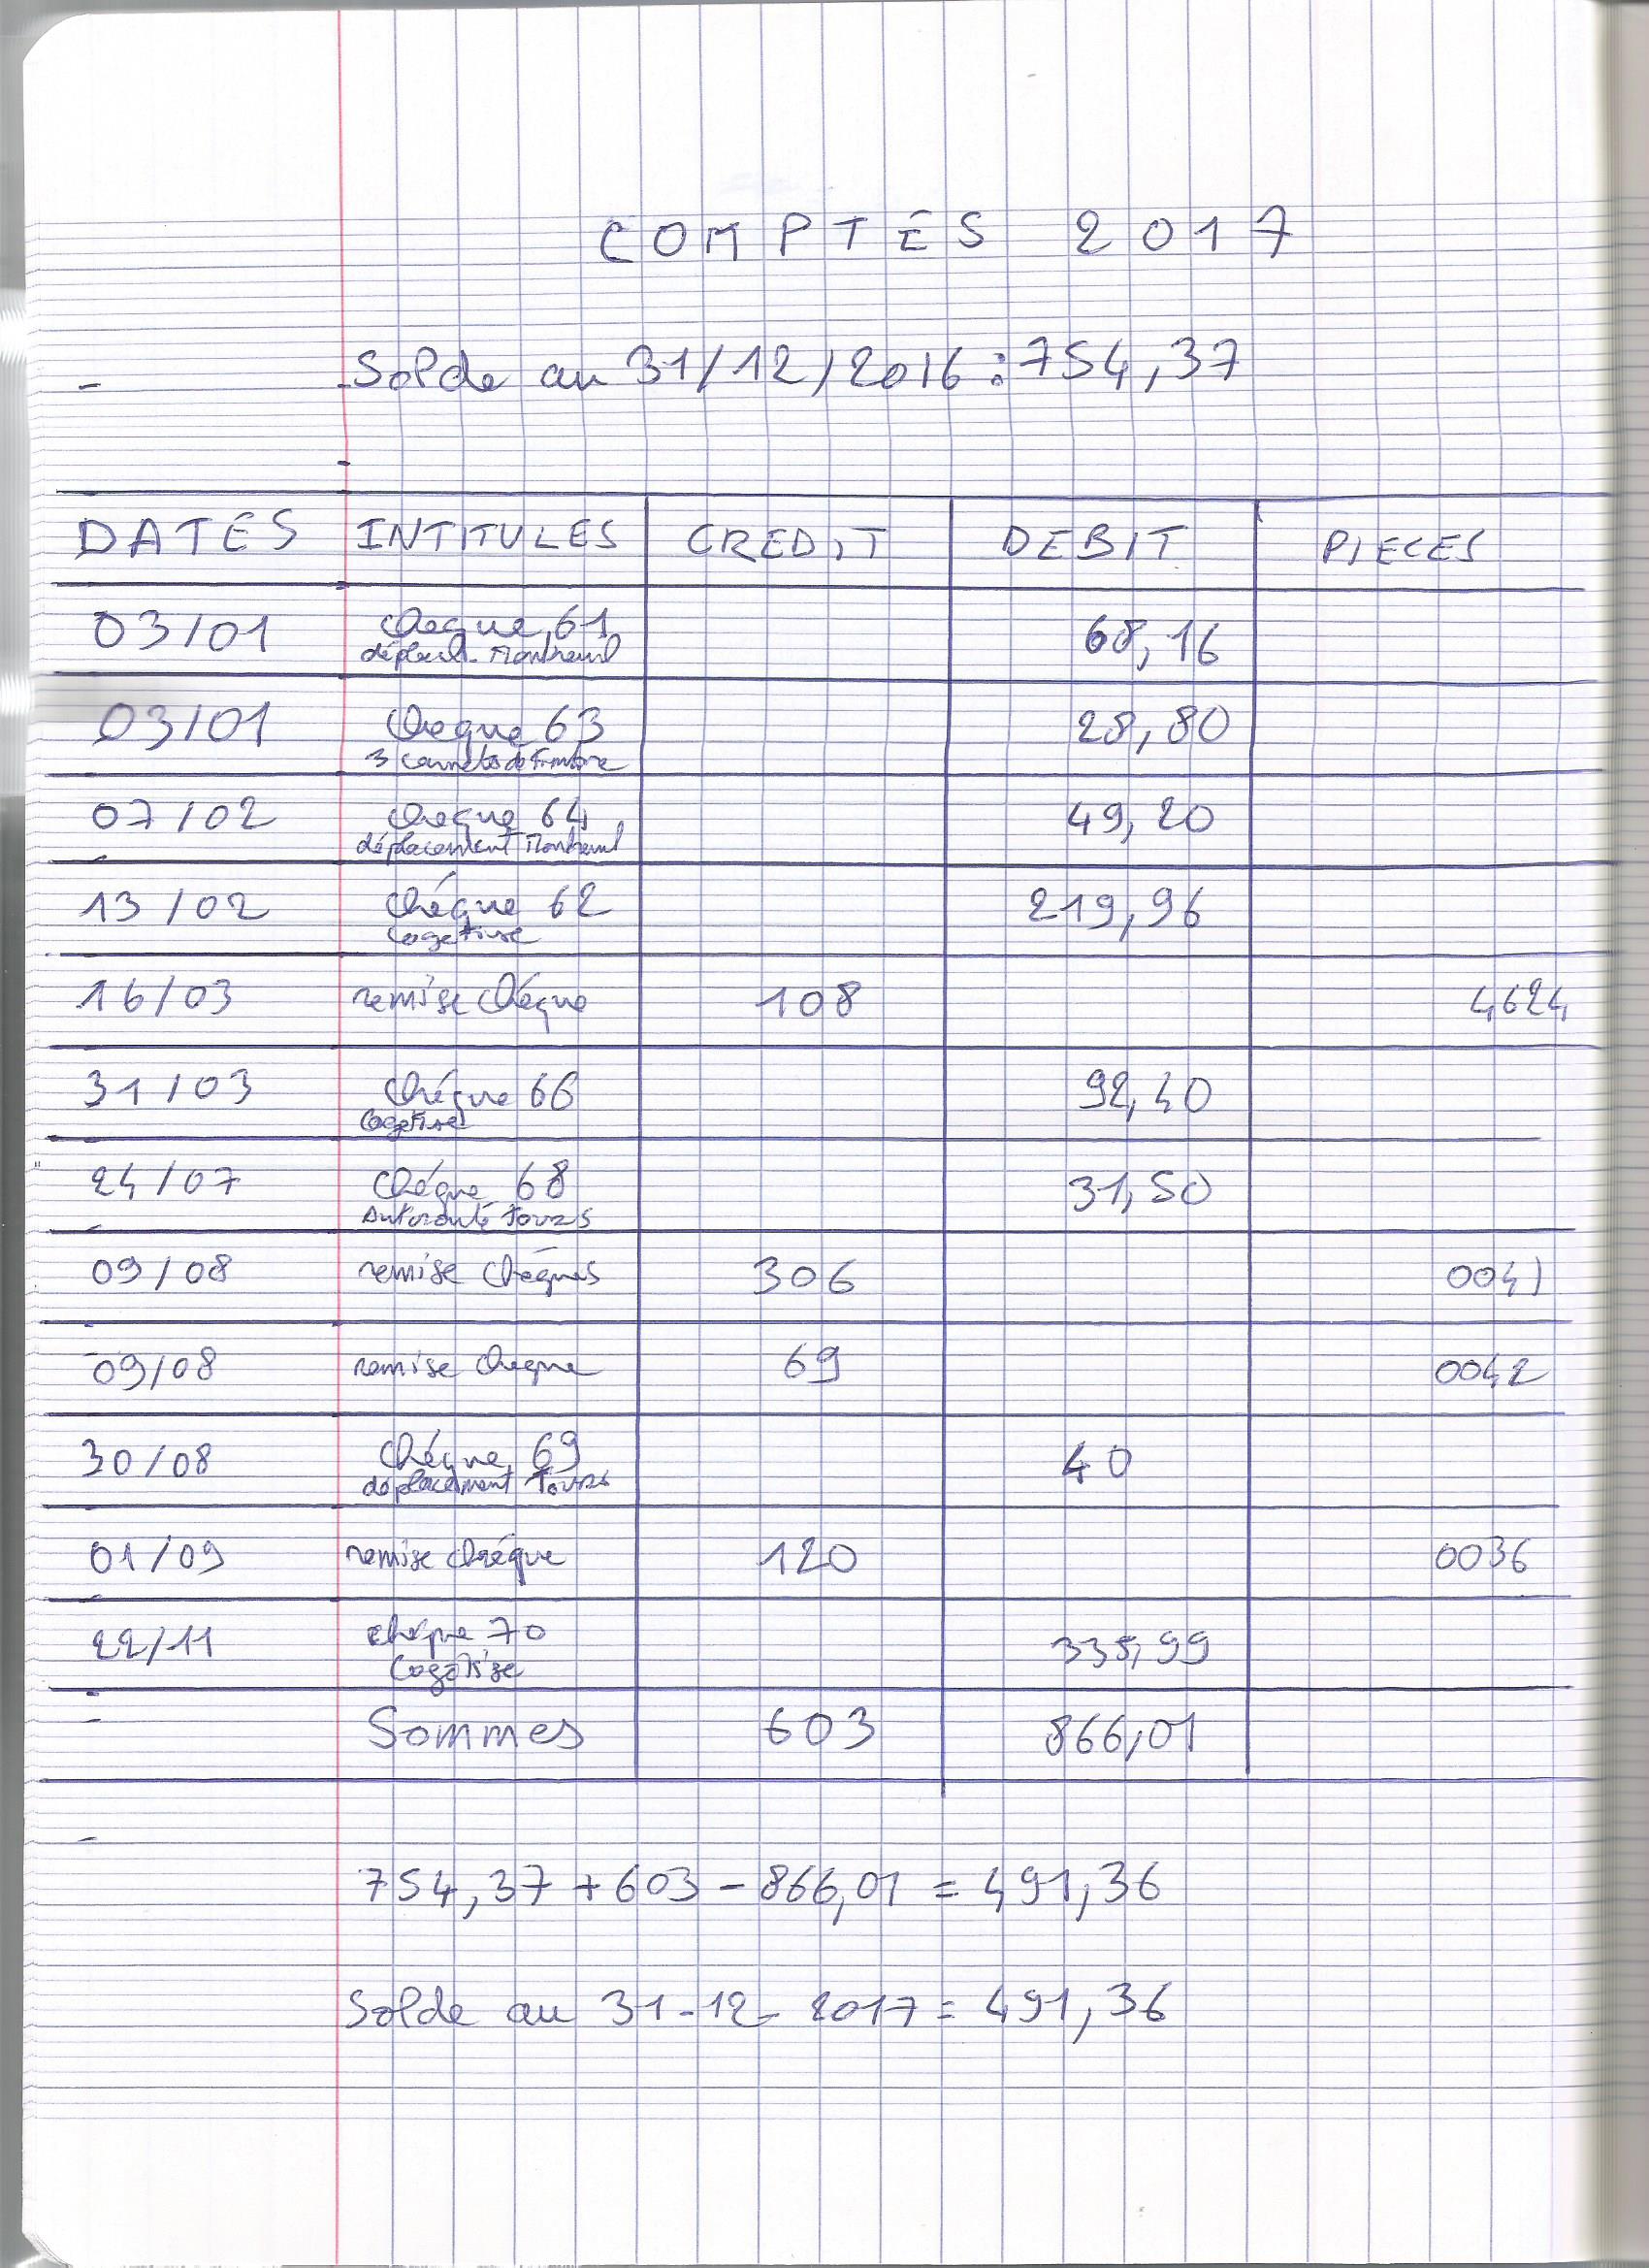 COMPTES 2017
Solde au 31/12/2016 : 754,37
DATES INTITULES CREDIT DEBIT PIECES
03/01 cheque 61 68,16
déplact. Montreuil
03/01 cheque 63 28,80
3 carnets de timbre
07/02 cheque 64 49,20
déplacement Montreuil
13/02 chéque 62 219,96
Cogetise
16/03 remise chéque 108 4624
31/03 chéque 66 92,40
Cogetise
24/07 chéque 68 31,50
Autoroute Tours
09/08 remise chéques 306 0041
09/08 remise cheque 69 0042
30/08 chéque 69 40
déplacement Tours
01/09 remise chéque 120 0036
22/11 chéque 70 335,99
Cogetise
Sommes 603 866,01
754,37 + 603 - 866,01 = 491,36
Solde au 31-12-2017 = 491,36